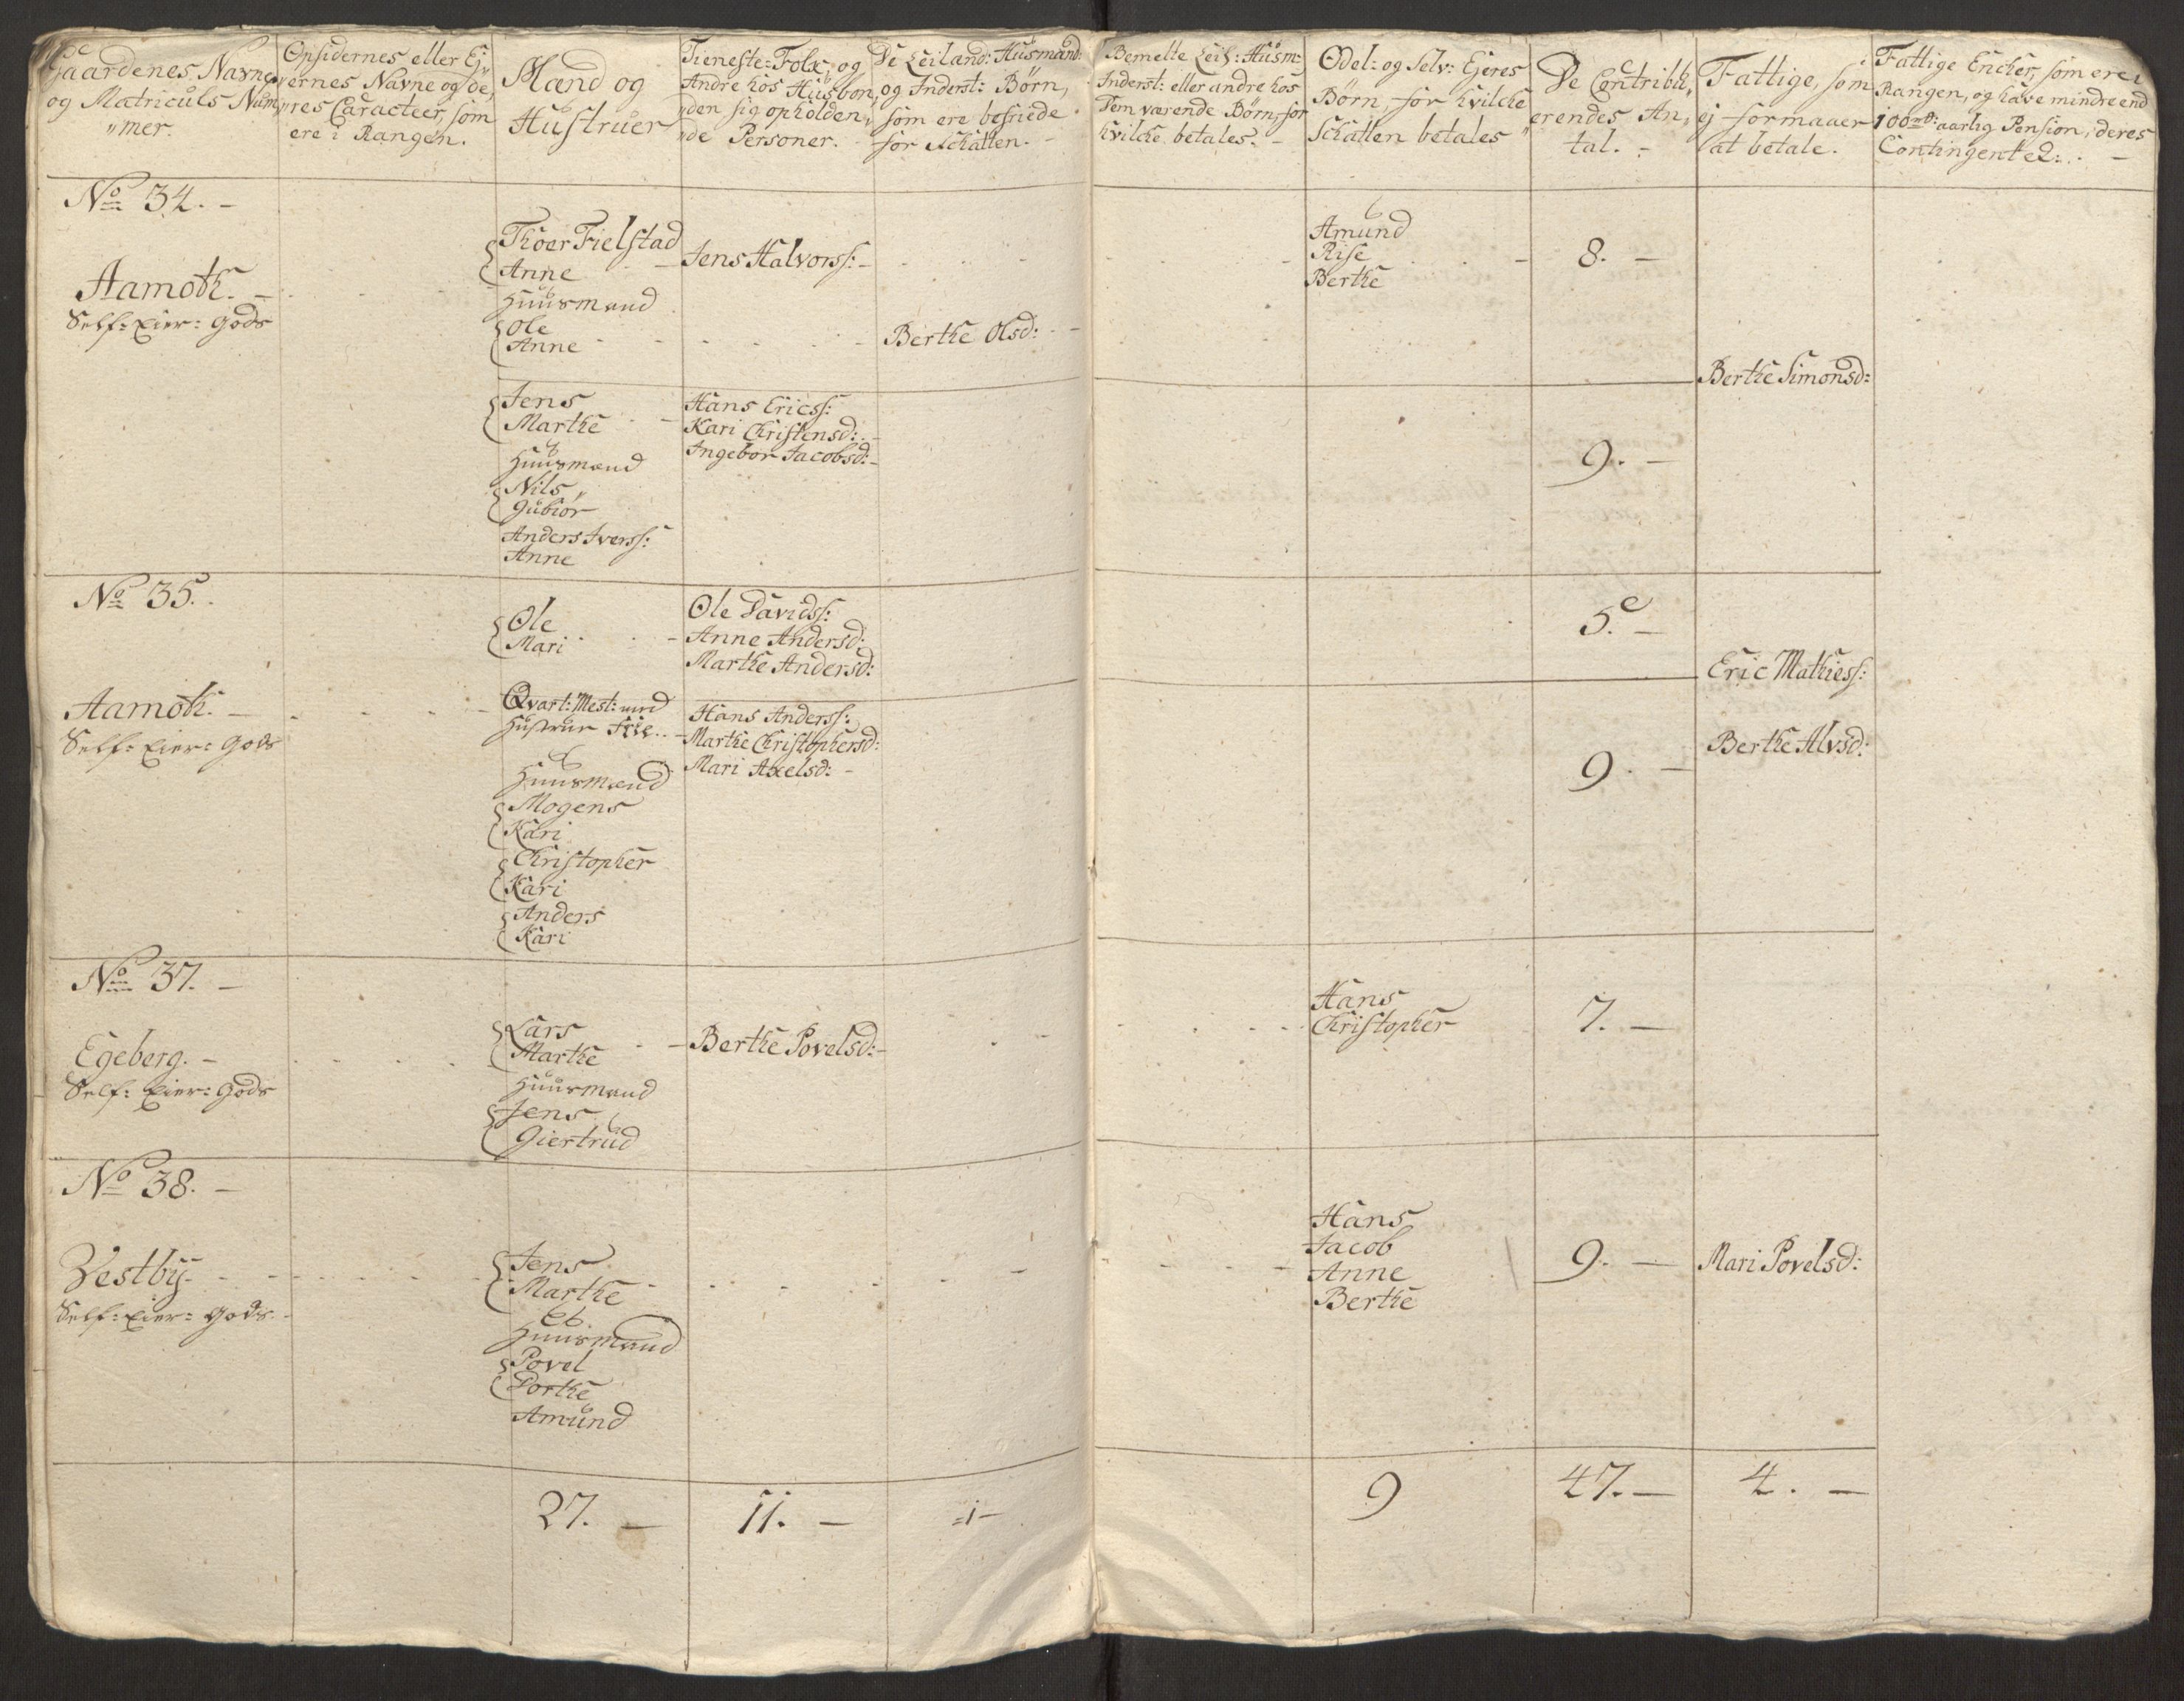 Gaardenes Navne
og Matriculs Num,,
,,mer.
Opsidernes eller Ej,,
,,ernes Navne og de,,
,,res Caracteer, som
ere i Rangen.
Mænd og
Hustruer
Tieneste=Folk, og
Andre hos Husbon,,
,,den sig opholden,,
,,de Personer.
De Leiland: Husmænd:
og Inderst: Börn,
som ere befriede
for Skatten. -
Bemelte Leil: Husm:
Inderst: eller andre hos
Dem værende Börn, for
hvilke betales. -
Odel- og Selv: Ejeres
Börn, for hvilche
Skatten betales
De Contribu,,
erendes An,,
tal. -
Fattige, som
ej formaaer
at betale.
Fattige Encker, som ere i
Rangen, og have mindre end
100 rd: aarlig Pension, deres
Contingent a 2: . -
No 34. -
Aamoth. -
Self=Eier=Gods
{Thoer Fielstad
Anne
Jens Halvorss: -
Amund
Rise
Berthe
8. -
Huusmænd
{Ole
Anne
Berthe Olsd: -
Berthe Simonsd:
{Jens
Marthe
Hans Ericss:
Kari Christensd: -
Ingebor Jacobsd: -
9. -
Huusmænd
{Nils
Gubiör
Anders Iverss:
Anne
No 35.
Aamoth. -
Self=Eier=Gods
{Ole
Mari
Ole Davidss:
Anne Andersd:
Marthe Andersd:
5. -
Eric Mathiess:
Qvart: Mest: med
Hustrue
Hans Anderss:
Marthe Christophersd:
Mari Axelsd: -
9. -
Berthe Alvsd:
Huusmænd
{Mogens
Kari
{Christopher
Kari
{Anders
Kari
No 37. -
Egeberg. -
Self=Eier=Gods
{Lars
Marthe
Berthe Povelsd: -
Hans
Christopher
7. -
Huusmænd
{Jens
Giertrud
No 38. -
Vestby.
Self=Eier=Gods.
{Jens
Marthe
Hans
Jacob
Anne
Berthe
9. -
Mari Povelsd:
Huusmænd
{Povel
Dorthe
Amund
27. -
11. -
=1-
9
47. -
4. -